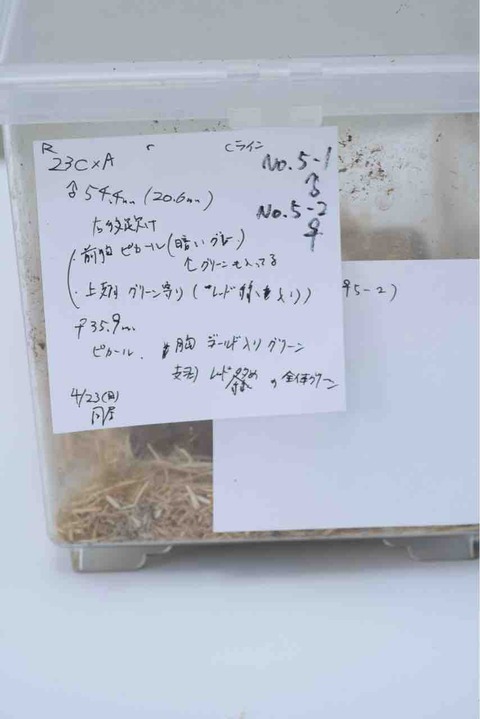 R r Cライン
23C×A
No.5-1
♂
No.5-2
♀
♂54.4mm(20.6mm)
・前胸 ピカール(暗いグレー)
↑グリーンも入ってる
・上翅 グリーン寄り(
♀35.9mm
ピカール. 胸 ゴールド入りグリーン
レッド 全体グリーン
4/23(日)
同居
♀5-2)